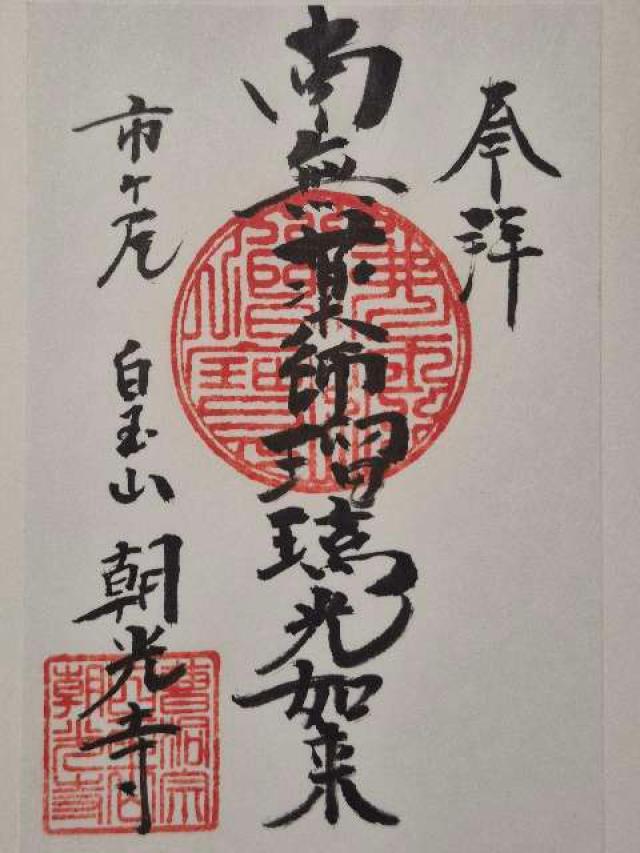 奉拝
南無薬師瑠璃光如来
市ヶ尾 白玉山 朝光寺
曹洞宗
朝光寺